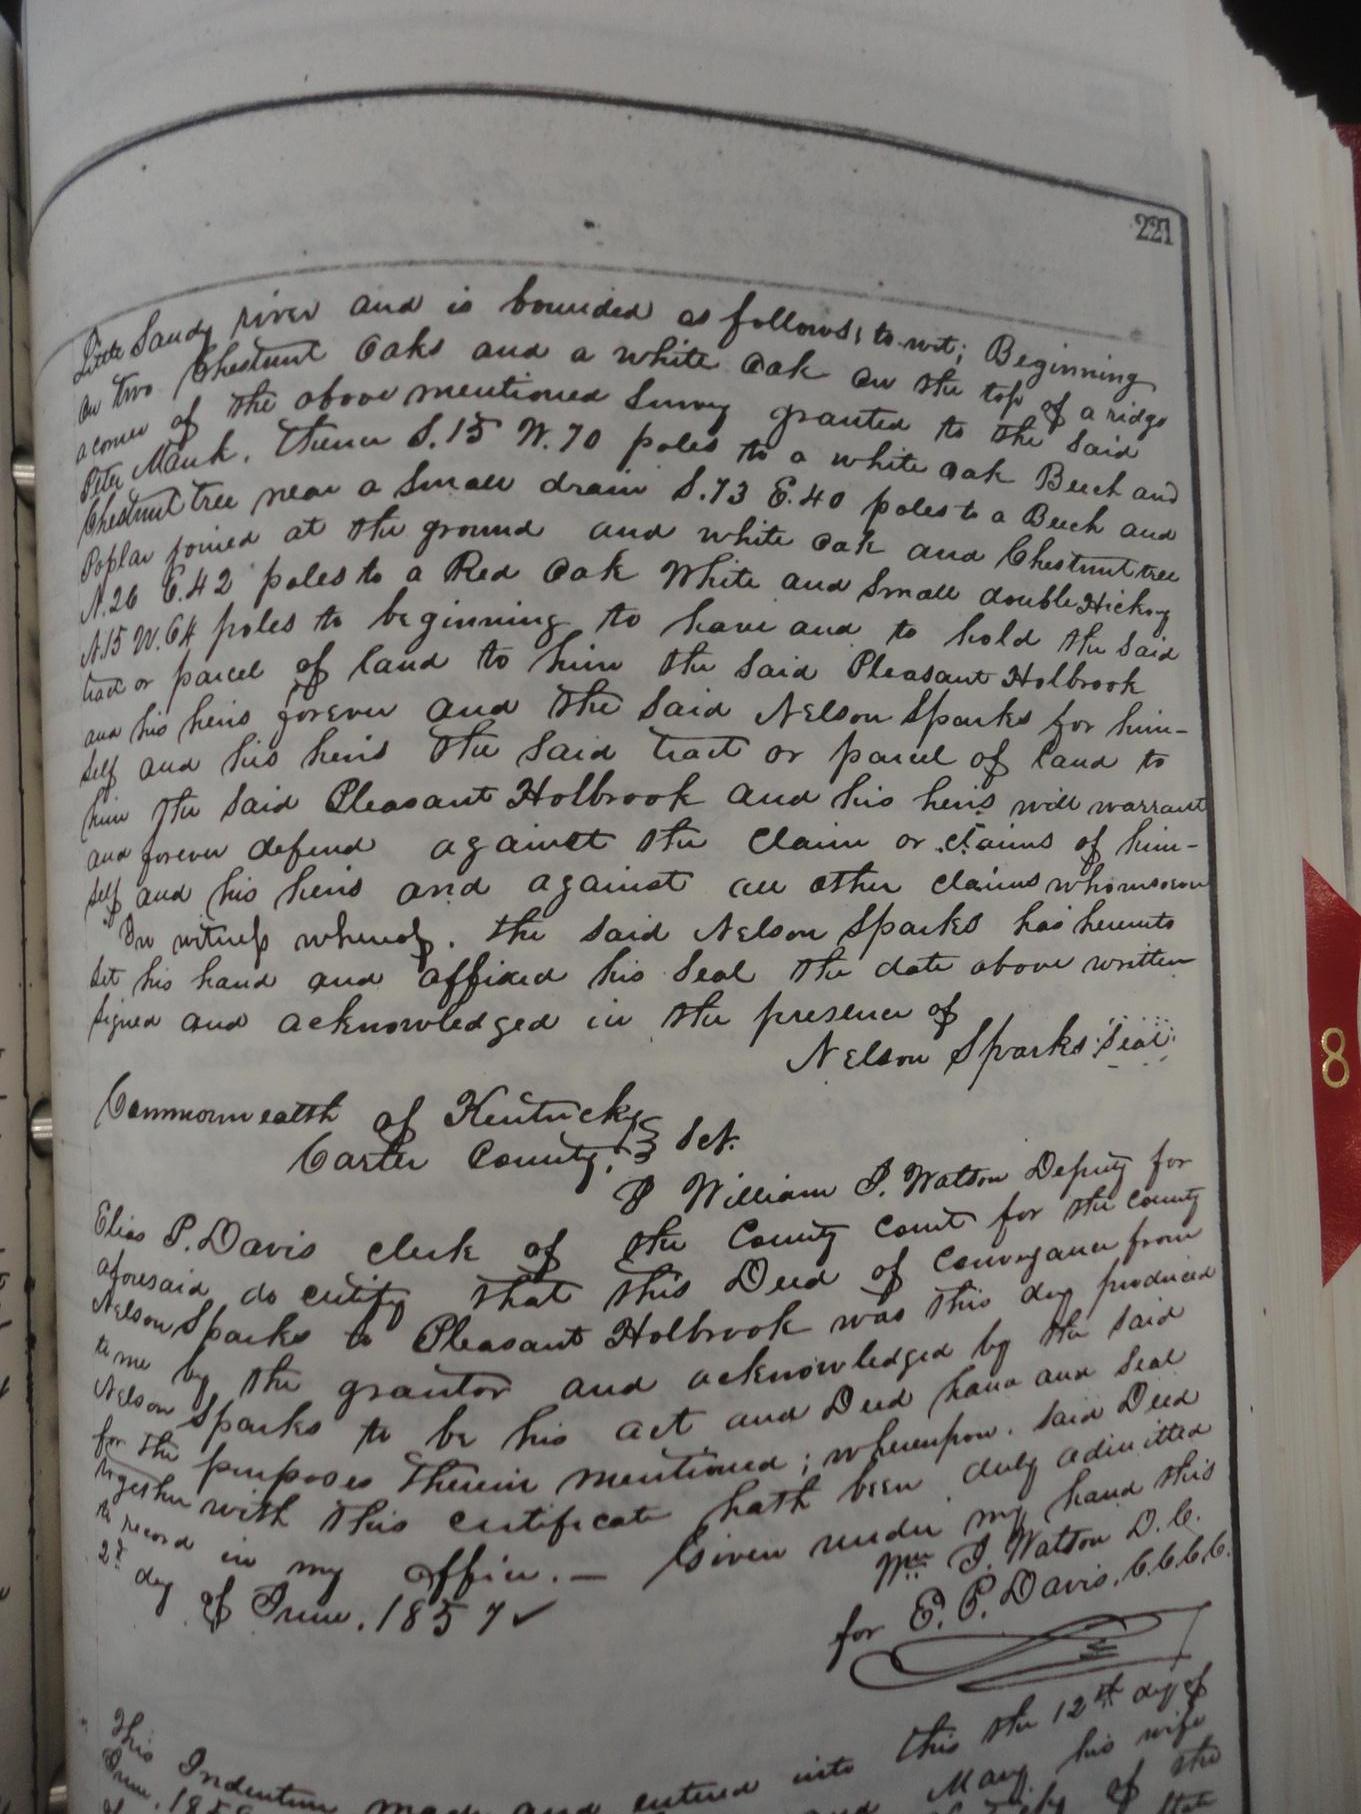 221
Little Sandy river and is bounded as follows; to wit; Beginning
on two Chestnut Oaks and a white Oak on the top of a ridge
a corner of the above mentioned Survey granted to the said
Peter Mauk. Thence S.15 W.70 poles to a white oak Beech and
Chestnut tree near a small drain S.73 E.40 poles to a Beech and
Poplar joined at the ground and white oak and Chestnut tree
N.26 E.42 poles to a Red Oak White and Small double Hickory
N.15 W.64 poles to beginning to have and to hold the said
tract or parcel of land to him the said Pleasant Holbrook
and his heirs forever and the said Nelson Sparks for him-
self and his heirs the said tract or parcel of land to
him the said Pleasant Holbrook and his heirs will warrant
and forever defend against the Claim or claims of him-
self and his heirs and against all other claims whomsoever
In witness whereof. the said Nelson Sparks has hereunto
set his hand and affixed his seal the date above written
signed and acknowledged in the presence of
Nelson Sparks Seal
Commonwealth of Kentucky
Carter County, Sct.
I William J. Watson Deputy for
Elias P. Davis clerk of the County Court for the County
aforesaid do certify that this Deed of Conveyance from
Nelson Sparks to Pleasant Holbrook was this day produced
to me by the grantor and acknowledged by the said
Nelson Sparks to be his act and Deed hand and seal
for the purposes therein mentioned; whereupon. said Deed
together with this certificate hath been duly admitted
to record in my office. — Given under my hand this
2d day of June, 1857 ✓
Wm J. Watson D.C.
for E. P. Davis, C.C.C.C.
This Indenture made and entered into this the 12th day of
June, Mary his wife
of the
8